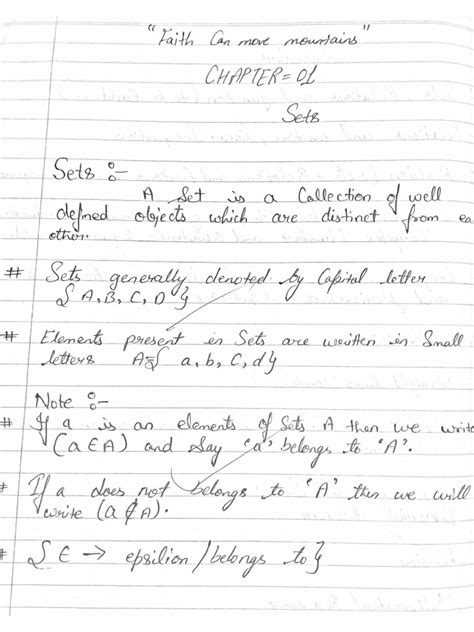 "Faith Can move mountains"
CHAPTER = 01
Sets
Sets :-
A Set is a Collection of well
defined objects which are distinct from ea
other.
# Sets generally denoted by Capital letter
{ A, B, C, D }
# Elements present in Sets are written in Small
letters A= { a, b, C, d }
Note :-
# If a is an elements of Sets A then we write
(a ∈ A) and Say 'a' belongs to 'A'.
# If a does not belongs to 'A' then we will
write (a ∉ A).
# { ∈ → epsilion / belongs to }